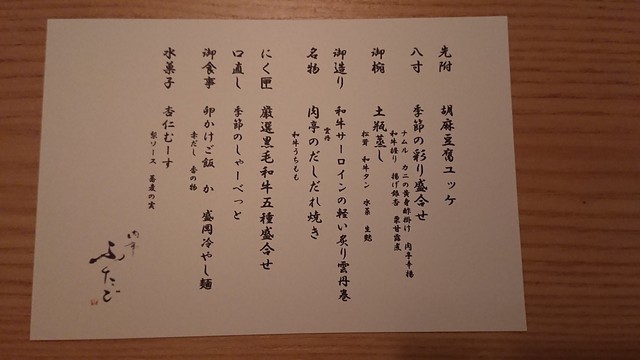 先附 胡麻豆腐ユッケ
八寸 季節の彩り盛合せ
ナムル カニの黄身酢掛け 肉亭牛揚
和牛握り 揚げ銀杏 栗甘露煮
御椀 土瓶蒸し
松茸 和牛タン 水菜 生麩
御造り 和牛サーロインの軽い炙り雲丹巻
雲丹
名物 肉亭のだしだれ焼き
和牛うちもも
にく匣 厳選黒毛和牛五種盛合せ
口直し 季節のしゃーべっと
御食事 卵かけご飯 か 盛岡冷やし麺
赤だし 香の物
水菓子 杏仁むーす
梨ソース 蕎麦の実
肉亭
ふたご